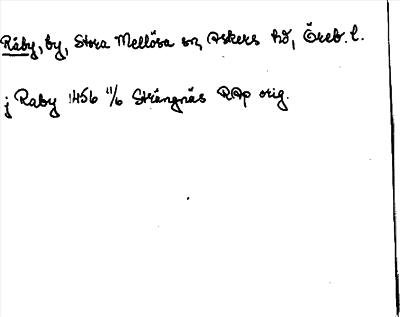 Råby, by, Stora Mellösa sn, Askers hd, Öreb. l.
j Raby 1456 11/6 Strängnäs RAp orig.